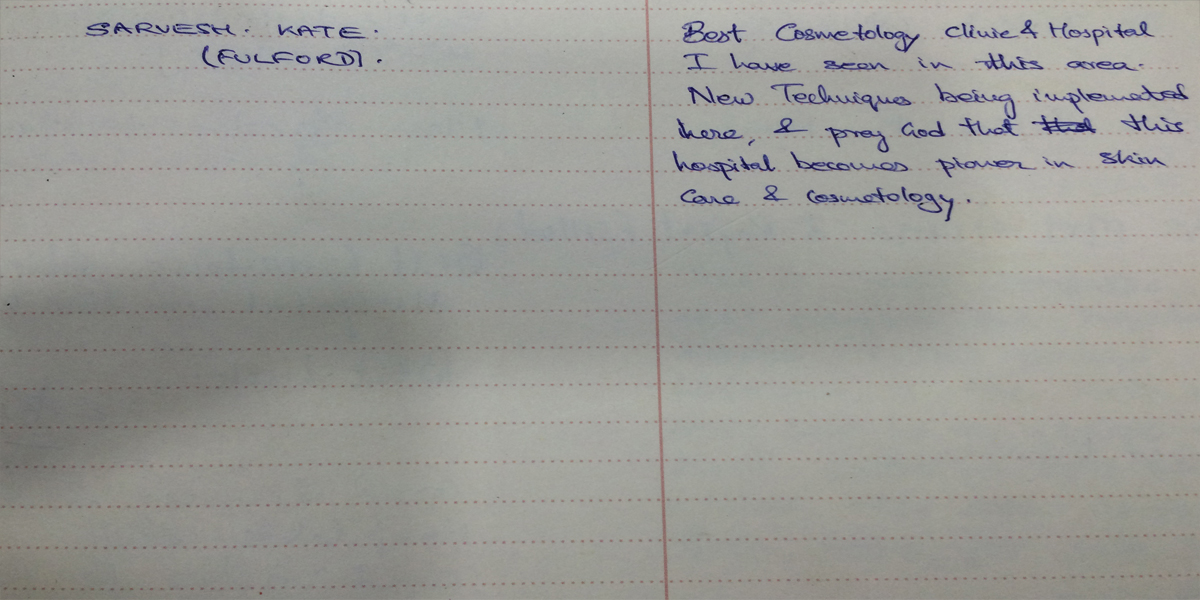 SARVESH. KATE.
(FULFORD).
Best Cosmetology Clinic & Hospital
I have seen in this area.
New Techniques being implemented
here, & pray God that this
hospital becomes pioner in skin
Care & Cosmetology.